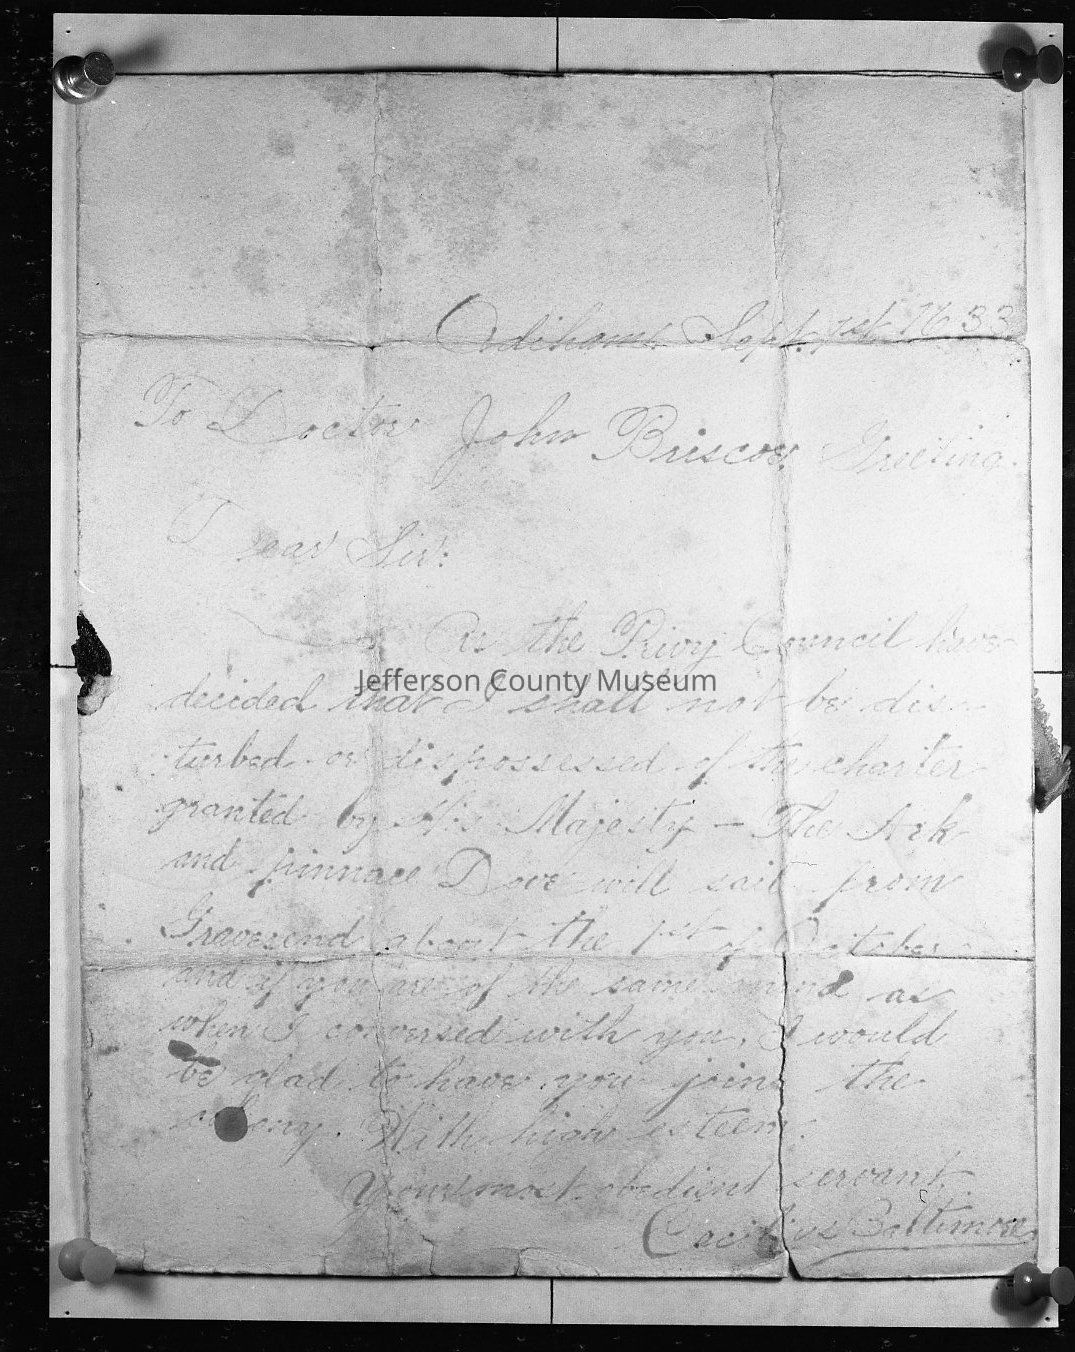 Odiham Sept. 1st 1633
To Doctor John Briscoe, Greeting.
Dear Sir:
As the Privy Council have
decided that I shall not be dis-
turbed or dispossessed of the charter
granted by His Majesty — The Ark
and pinnace Dove will sail from
Gravesend about the 1st of October
and if you are of the same mind as
when I conversed with you, I would
be glad to have you join the
colony. With high esteem.
Your most obedient servant,
Caecilius Baltimore
Jefferson County Museum